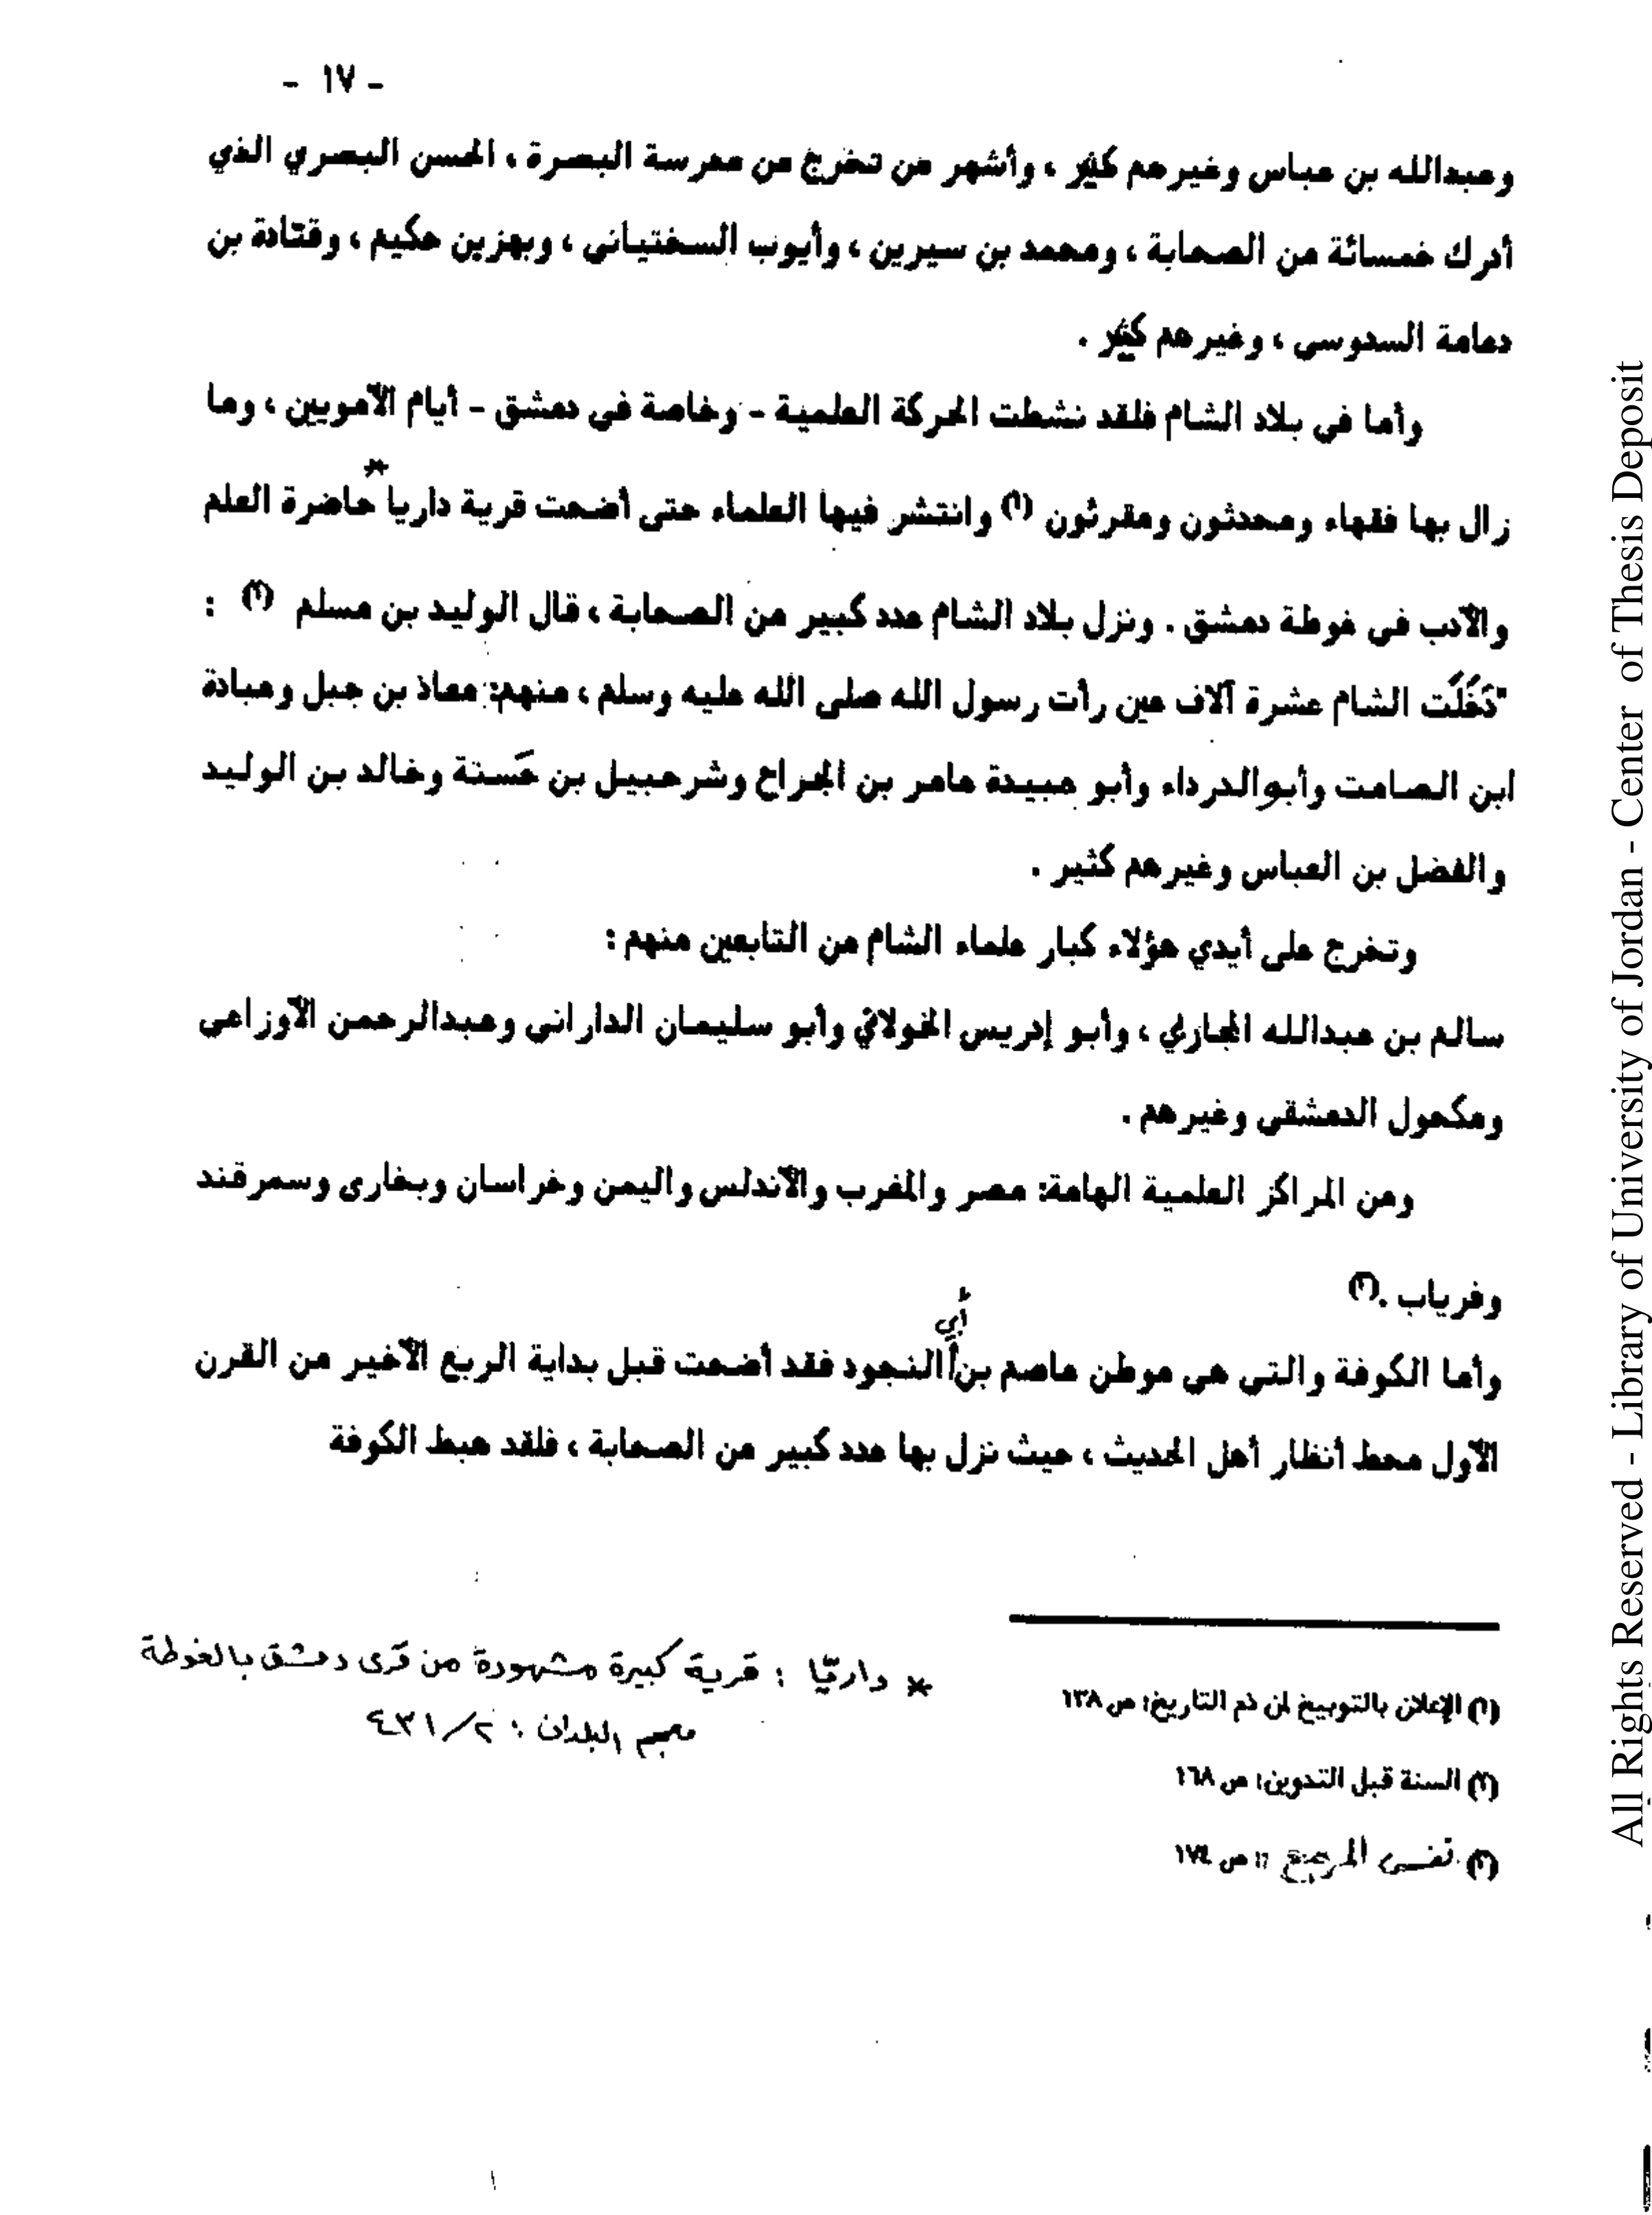 - ١٧ -
وعبدالله بن عباس وغيرهم كثير ، وأشهر من تخرج من مدرسة البصرة ، الحسن البصري الذي
أدرك خمسائة من الصحابة ، ومحمد بن سيرين ، وأيوب السختياني ، وبهزبن حكيم ، وقتادة بن
دعامة السدوسي ، وغيرهم كثير .
وأما في بلاد الشام فلقد نشطت الحركة العلمية - وخاصة في دمشق - أيام الأمويين ، وما
زال بها فقهاء ومحدثون ومقرئون (١) وانتشر فيها العلماء حتى أضحت قرية داريا* حاضرة العلم
والأدب في غوطة دمشق . ونزل بلاد الشام عدد كبير من الصحابة ، قال الوليد بن مسلم (٢) :
"دَخَلَت الشام عشرة آلاف عين رأت رسول الله صلى الله عليه وسلم ، منهم: معاذ بن جبل وعبادة
ابن الصامت وأبوالدرداء وأبو عبيدة عامر بن الجراح وشرحبيل بن حَسنة وخالد بن الوليد
والفضل بن العباس وغيرهم كثير .
وتخرج على أيدي هؤلاء كبار علماء الشام من التابعين منهم :
سالم بن عبدالله المحاربي ، وأبو إدريس الخولاني وأبو سليمان الداراني وعبدالرحمن الأوزاعي
ومكحول الدمشقي وغيرهم .
ومن المراكز العلمية الهامة: مصر والمغرب والأندلس واليمن وخراسان وبخارى وسمرقند
وفرياب .(٣)
وأما الكوفة والتي هي موطن عاصم بن أبي النجود فقد أضحت قبل بداية الربع الأخير من القرن
الأول محط أنظار أهل الحديث ، حيث نزل بها عدد كبير من الصحابة ، فلقد هبط الكوفة
(١) الإعلان بالتوبيخ لمن ذم التاريخ: ص ١٣٨
(٢) السنة قبل التدوين: ص ١٦٨
(٣) نفس المرجع : ص ١٧٤
* داريّا : قرية كبيرة مشهورة من قرى دمشق بالغوطة
معجم البلدان : ٢/ ٤٣١
All Rights Reserved - Library of University of Jordan - Center of Thesis Deposit